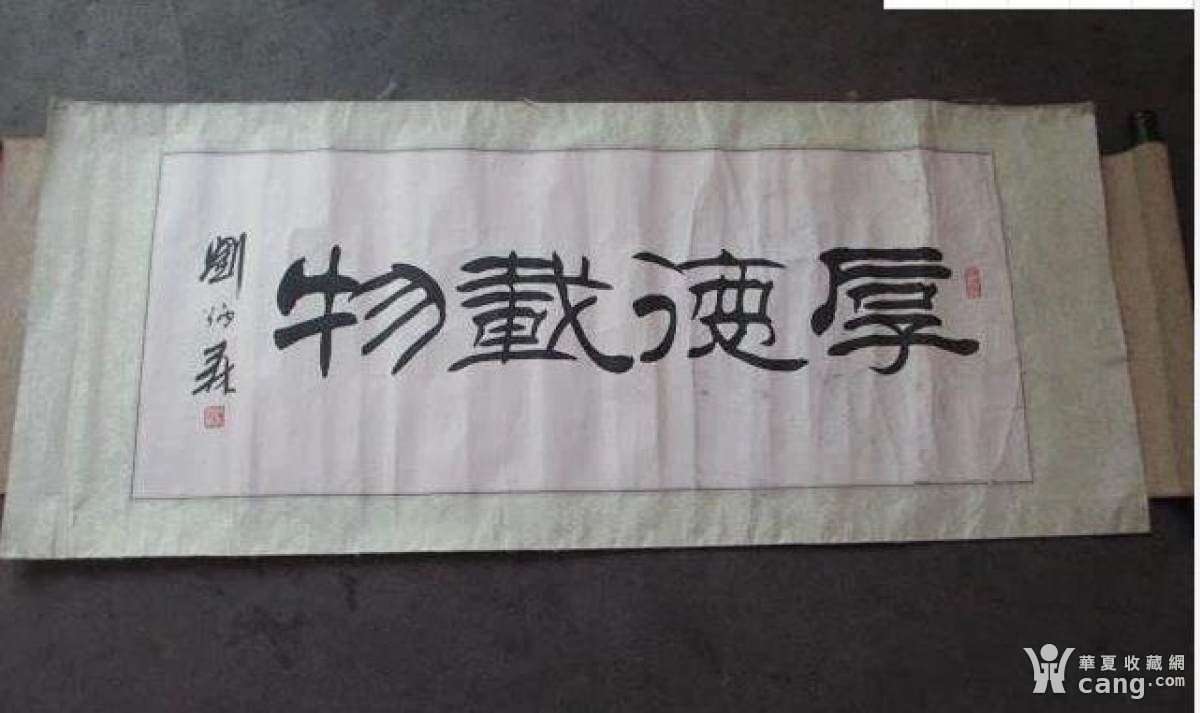 厚德載物
劉炳森
華夏收藏網
cang.com